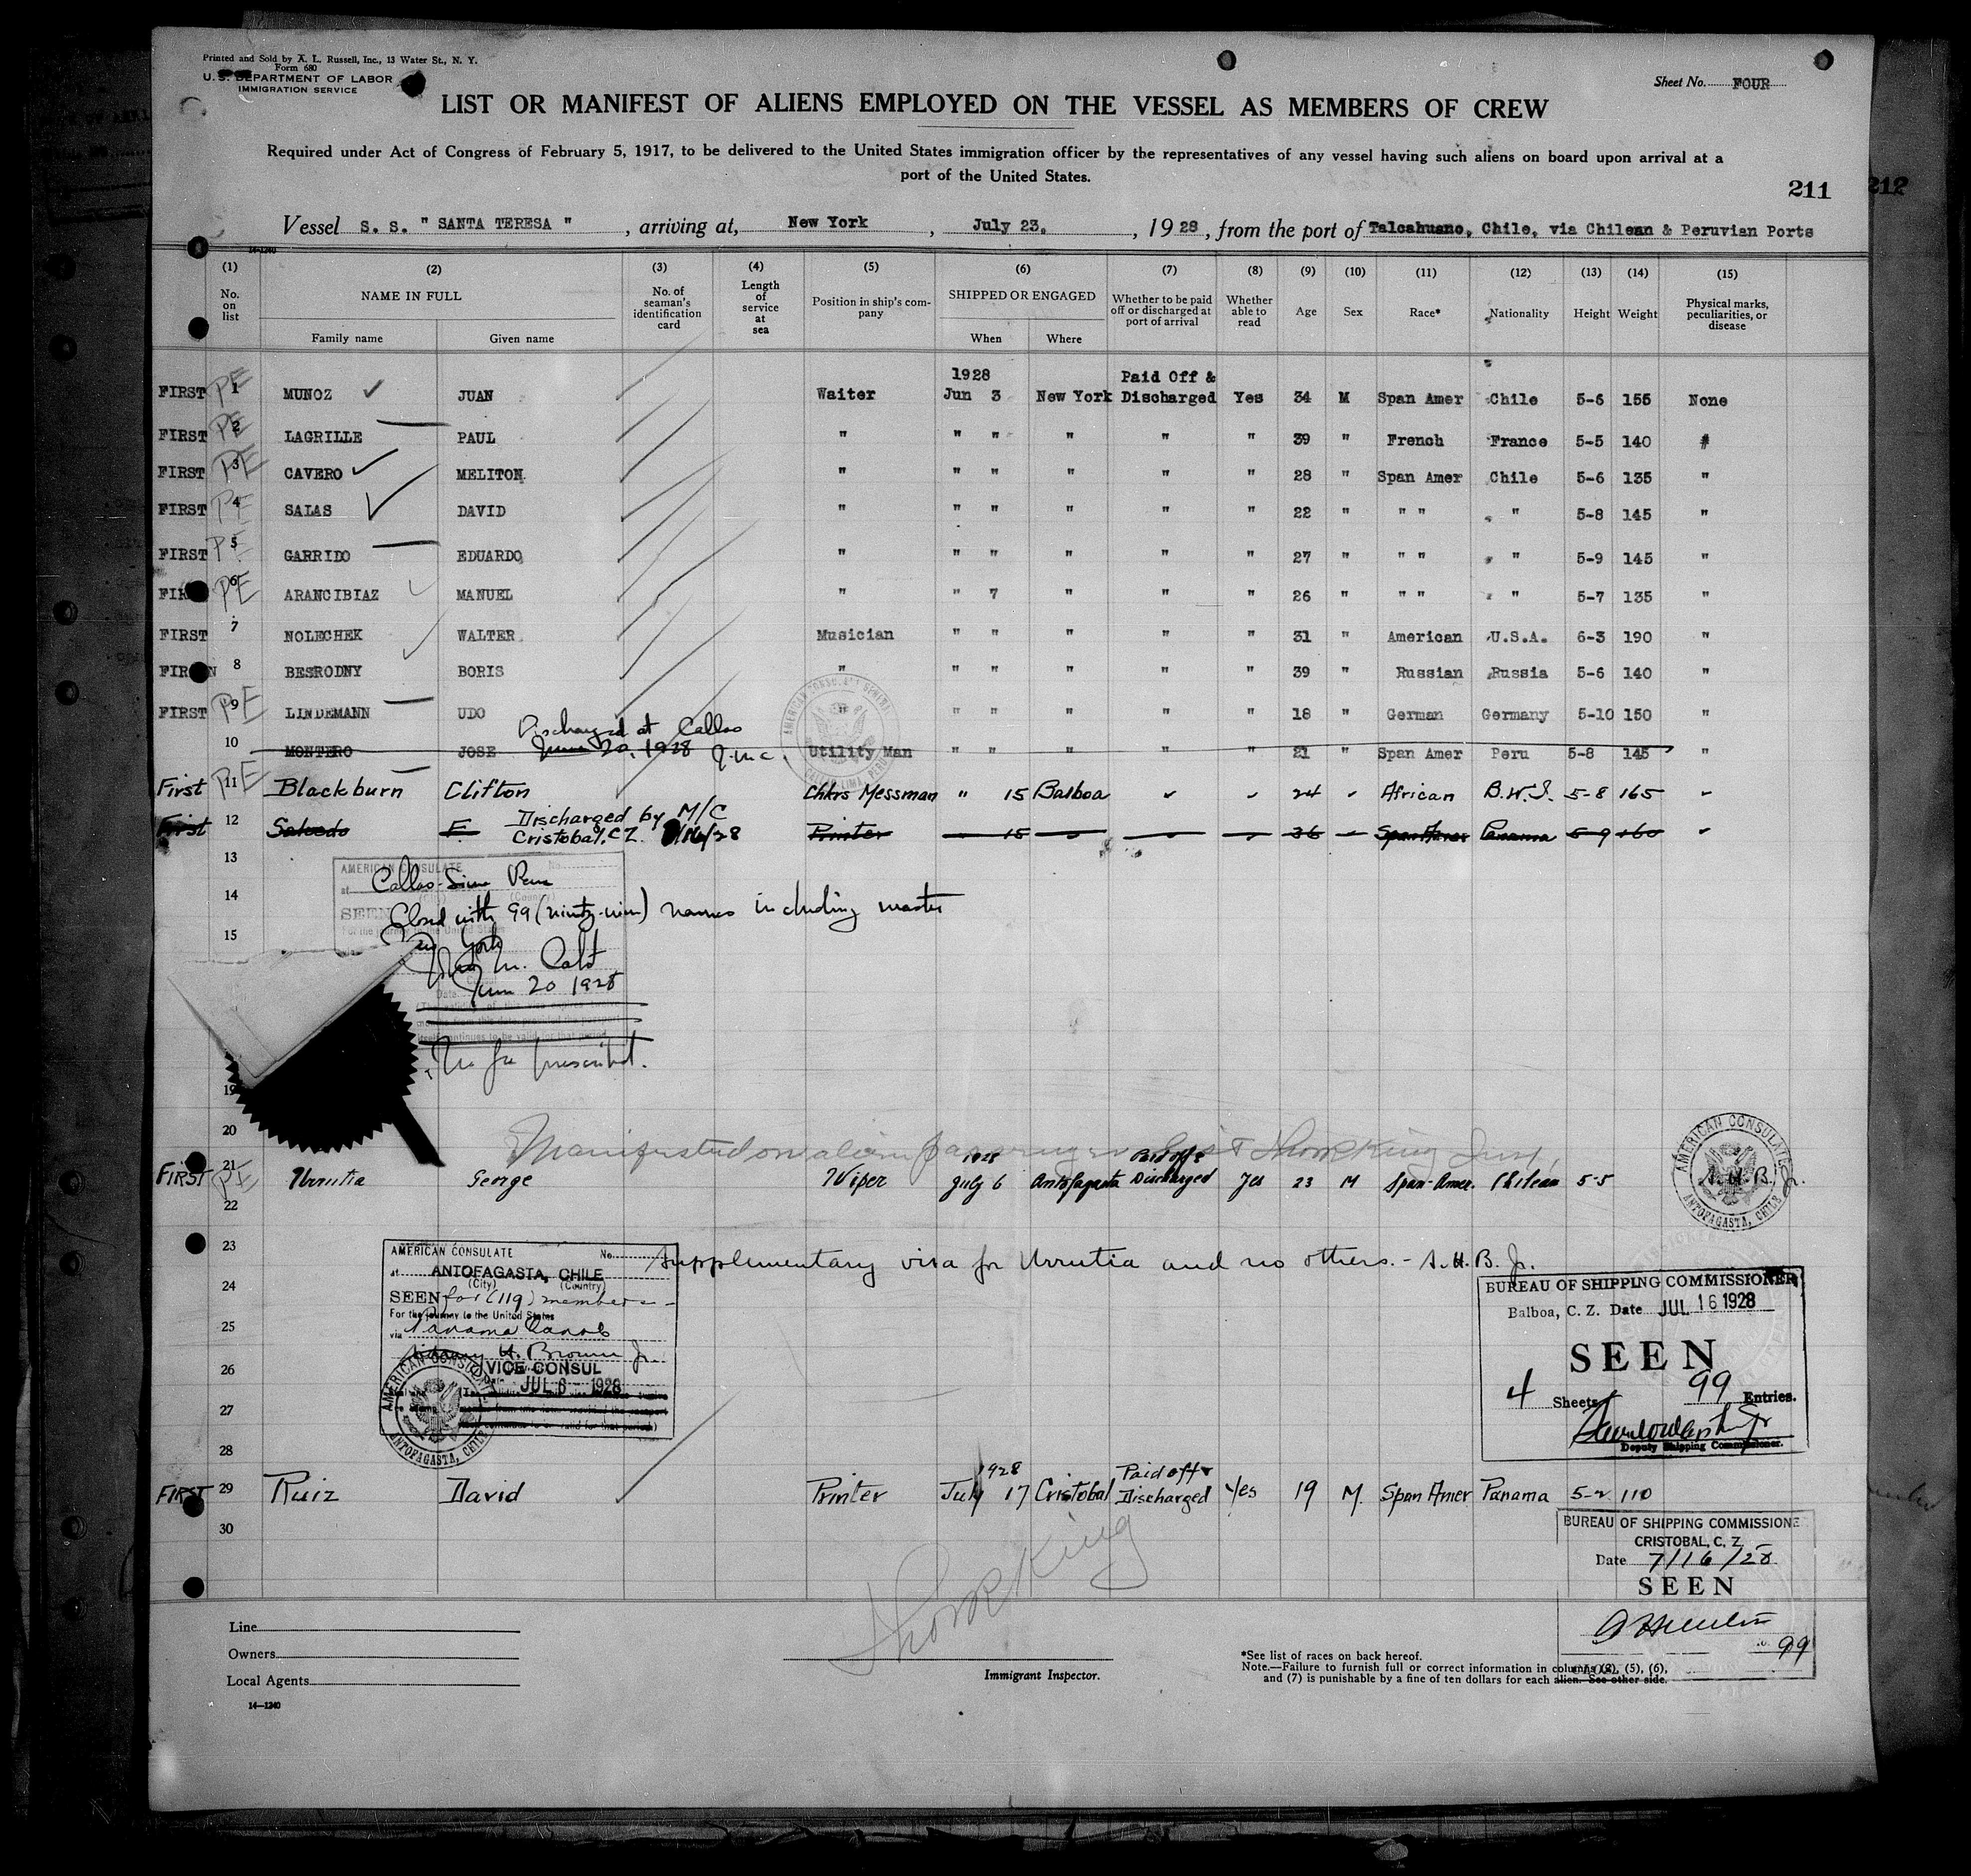 Printed and Sold by A. L. Russell, Inc., 13 Water St., N. Y.
Form 680
U. S. DEPARTMENT OF LABOR
IMMIGRATION SERVICE
Sheet No. FOUR
LIST OR MANIFEST OF ALIENS EMPLOYED ON THE VESSEL AS MEMBERS OF CREW
Required under Act of Congress of February 5, 1917, to be delivered to the United States immigration officer by the representatives of any vessel having such aliens on board upon arrival at a
port of the United States.
211 212
Vessel S. S. " SANTA TERESA ", arriving at, New York, July 23, 1928, from the port of Talcahuano, Chile, via Chilean & Peruvian Ports
14-1240
(1) (2) (3) (4) (5) (6) (7) (8) (9) (10) (11) (12) (13) (14) (15)
No. on list NAME IN FULL No. of seaman's identification card Length of service at sea Position in ship's company SHIPPED OR ENGAGED Whether to be paid off or discharged at port of arrival Whether able to read Age Sex Race* Nationality Height Weight Physical marks, peculiarities, or disease
Family name Given name When Where
1928 Paid Off &
FIRST PE 1 MUNOZ JUAN Waiter Jun 3 New York Discharged Yes 34 M Span Amer Chile 5-6 155 None
FIRST PE 2 LAGRILLE PAUL " " " " " " 39 " French France 5-5 140 "
FIRST PE 3 CAVERO MELITON " " " " " " 28 " Span Amer Chile 5-6 135 "
FIRST PE 4 SALAS DAVID " " " " " " 22 " " " " 5-8 145 "
FIRST PE 5 GARRIDO EDUARDO " " " " " " 27 " " " " 5-9 145 "
FIRST PE 6 ARANCIBIAZ MANUEL " " 7 " " " 26 " " " " 5-7 135 "
FIRST 7 NOLECHEK WALTER Musician " " " " " 31 " American U.S.A. 6-3 190 "
FIRST 8 BESRODNY BORIS " " " " " " 39 " Russian Russia 5-6 140 "
FIRST PE 9 LINDEMANN UDO " " " " " " 18 " German Germany 5-10 150 "
Discharged at Callao
10 MONTERO JOSE June 20, 1928 J.M.C. Utility Man " " " " " 21 " Span Amer Peru 5-8 145 "
First PE 11 Blackburn Clifton Chkrs Messman " 15 Balboa 24 African B.W.I. 5-8 165
Discharged by M/C
First 12 Salcedo E. Cristobal, C.Z. 7/16/28 Printer 15 36 Span Amer Panama 5-9 160
13
AMERICAN CONSULATE No.
at Callao-Lima Peru
14
SEEN Closed with 99 (ninety-nine) names including master
For the journey to the United States
15
New York
June 20 1928
No fee prescribed.
19
20
Manifested on alien passenger list Thor King Insp.
1928 Paid off &
FIRST PE 21 Urrutia George Wiper July 6 Antofagasta Discharged Yes 23 M Span-Amer. Chilean 5-5
AMERICAN CONSULATE
A.H.B. Jr.
ANTOFAGASTA, CHILE
22
23
Supplementary visa for Urrutia and no others. - A.H.B. Jr.
AMERICAN CONSULATE No.
at ANTOFAGASTA, CHILE
(City) (Country)
24
SEEN for (119) members
For the journey to the United States
25
via Panama Canal
H. Brown Jr.
26
VICE CONSUL
Date JUL 6 - 1928
27
AMERICAN CONSULATE
ANTOFAGASTA, CHILE
28
BUREAU OF SHIPPING COMMISSIONER
Balboa, C. Z. Date JUL 16 1928
SEEN
4 Sheets 99 Entries.
Deputy Shipping Commissioner.
1928 Paid off &
FIRST 29 Ruiz David Printer July 17 Cristobal Discharged Yes 19 M. Span Amer Panama 5-2 110
30
BUREAU OF SHIPPING COMMISSIONE
CRISTOBAL, C. Z.
Date 7/16/28
SEEN
99
Thor King
Line
Owners
Local Agents
Immigrant Inspector.
*See list of races on back hereof.
Note.—Failure to furnish full or correct information in columns (2), (5), (6),
and (7) is punishable by a fine of ten dollars for each alien. See other side.
14—1240